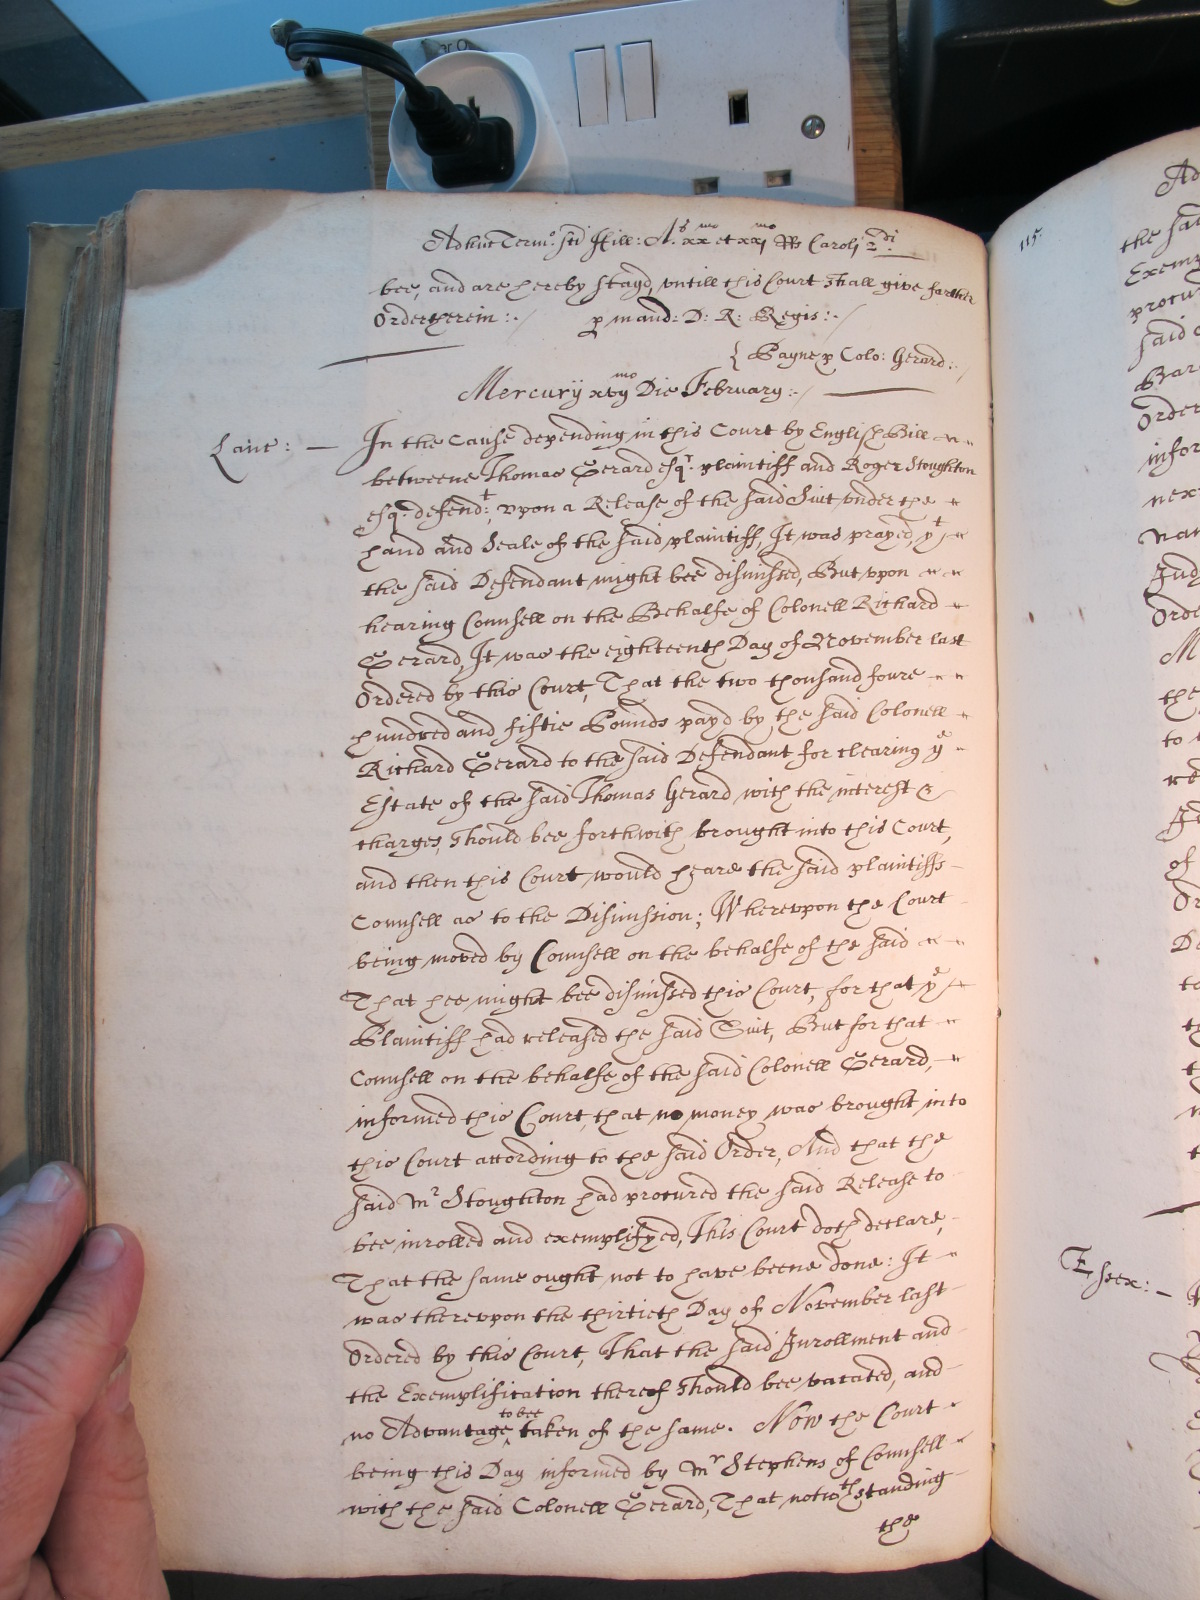 Adhuc Term.o sci Hill: A.o xx.mo et xxj.mo Rs Caroli 2.di
bee, and are hereby stayd, vntill this Court shall give farther
Order therein:./ p mand: D: R: Regis:./
{ Payne p Colo: Gerard:./
Mercurij xvij.mo Die February:./
Lanc: — In the Cause depending in this Court by English Bill
betweene Thomas Gerard esq.r plaintiff and Roger Stoughton
esq.r defend.t, vpon a Release of the said Suit vnder the
hand and Seale of the said plaintiff, It was prayed, y.t
the said Defendant might bee dismissed, But vpon
hearing Counsell on the Behalfe of Colonell Richard
Gerard, It was the eighteenth Day of November last
Ordered by this Court, That the two thousand foure
hundred and fiftie Pounds payd by the said Colonell
Richard Gerard to the said Defendant for clearing y.e
Estate of the said Thomas Gerard with the interest &
charges, should bee forthwith brought into this Court,
and then this Court would heare the said plaintiffs
Counsell as to the Dismission; Wherevpon the Court
being moved by Counsell on the behalfe of the said
That hee might bee dismissed this Court, for that y.e
Plaintiff had released the said Suit, But for that
Counsell on the behalfe of the said Colonell Gerard,
informed this Court, that no money was brought into
this Court according to the said Order, And that the
said M.r Stoughton had procured the said Release to
bee inrolled and exemplifyed, This Court doth declare,
That the same ought not to have beene done: It
was therevpon the thirtieth Day of November last
Ordered by this Court, That the said Inrollment and
the Exemplification thereof should bee vacated, and
no Advantage, to bee taken of the same. Now the Court
being this Day informed by M.r Stephens of Counsell
with the said Colonell Gerard, That notw.th standing
the
115.
Ad
the sai
Exemp
procu
said
Bar
Order
infor
nex
nam
Jud
Orde
M
the
to
re
of
Or
De
to
Essex: —